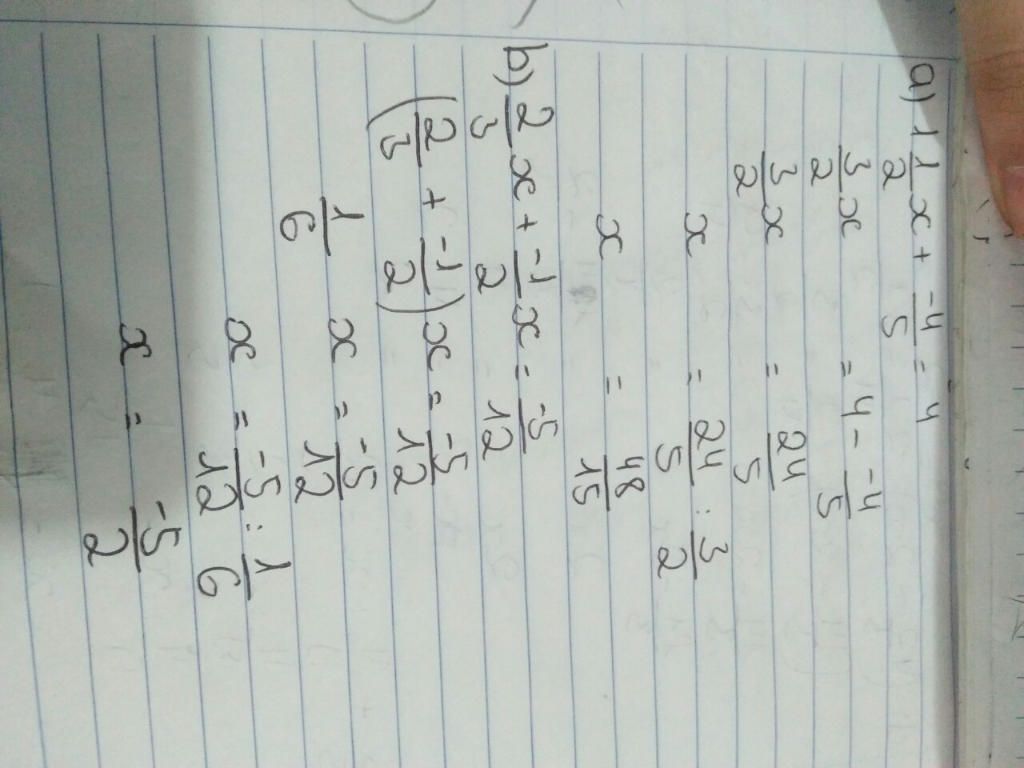 a) 1 1/2 x + -4/5 = 4
3/2 x = 4 - -4/5
3/2 x = 24/5
x = 24/5 : 3/2
x = 48/15
b) 2/3 x + -1/2 x = -5/12
(2/3 + -1/2) x = -5/12
1/6 x = -5/12
x = -5/12 : 1/6
x = -5/2